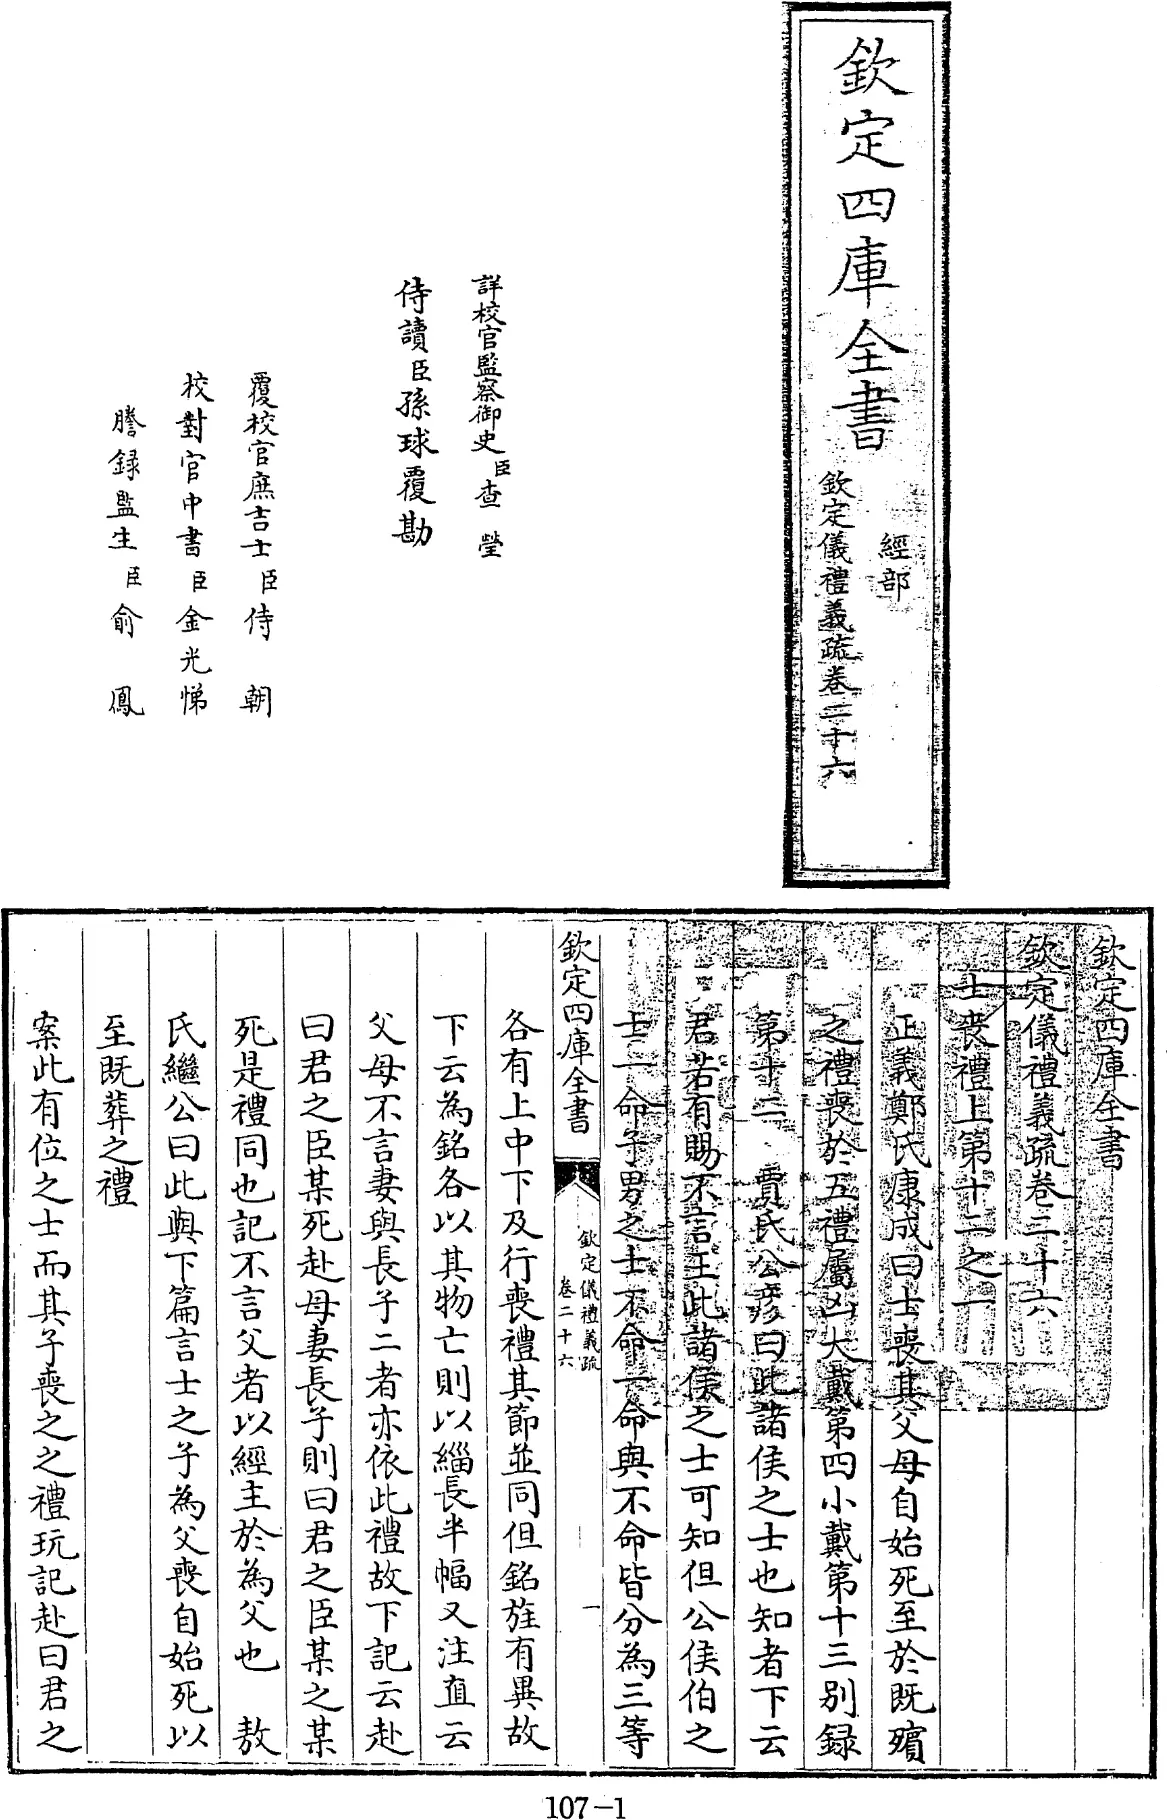 欽定四庫全書
經部
欽定儀禮義疏卷二十六
詳校官監察御史臣查瑩
侍讀臣孫球覆勘
覆校官庶吉士臣侍朝
校對官中書臣金光悌
謄録監生臣俞鳳
欽定四庫全書
欽定儀禮義疏卷二十六
士喪禮上第十二之一
正義鄭氏康成曰士喪其父母自始死至於既殯
之禮喪於五禮屬凶大戴第四小戴第十三别録
第十二 賈氏公彦曰此諸侯之士也知者下云
君若有賜不言王此諸侯之士可知但公侯伯之
士一命子男之士不命一命與不命皆分為三等
欽定四庫全書
欽定儀禮義疏
卷二十六
一
各有上中下及行喪禮其節並同但銘旌有異故
下云為銘各以其物亡則以緇長半幅又注直云
父母不言妻與長子二者亦依此禮故下記云赴
曰君之臣某死赴母妻長子則曰君之臣某之某
死是禮同也記不言父者以經主於為父也 敖
氏繼公曰此與下篇言士之子為父喪自始死以
至既葬之禮
案此有位之士而其子喪之之禮玩記赴曰君之
107-1